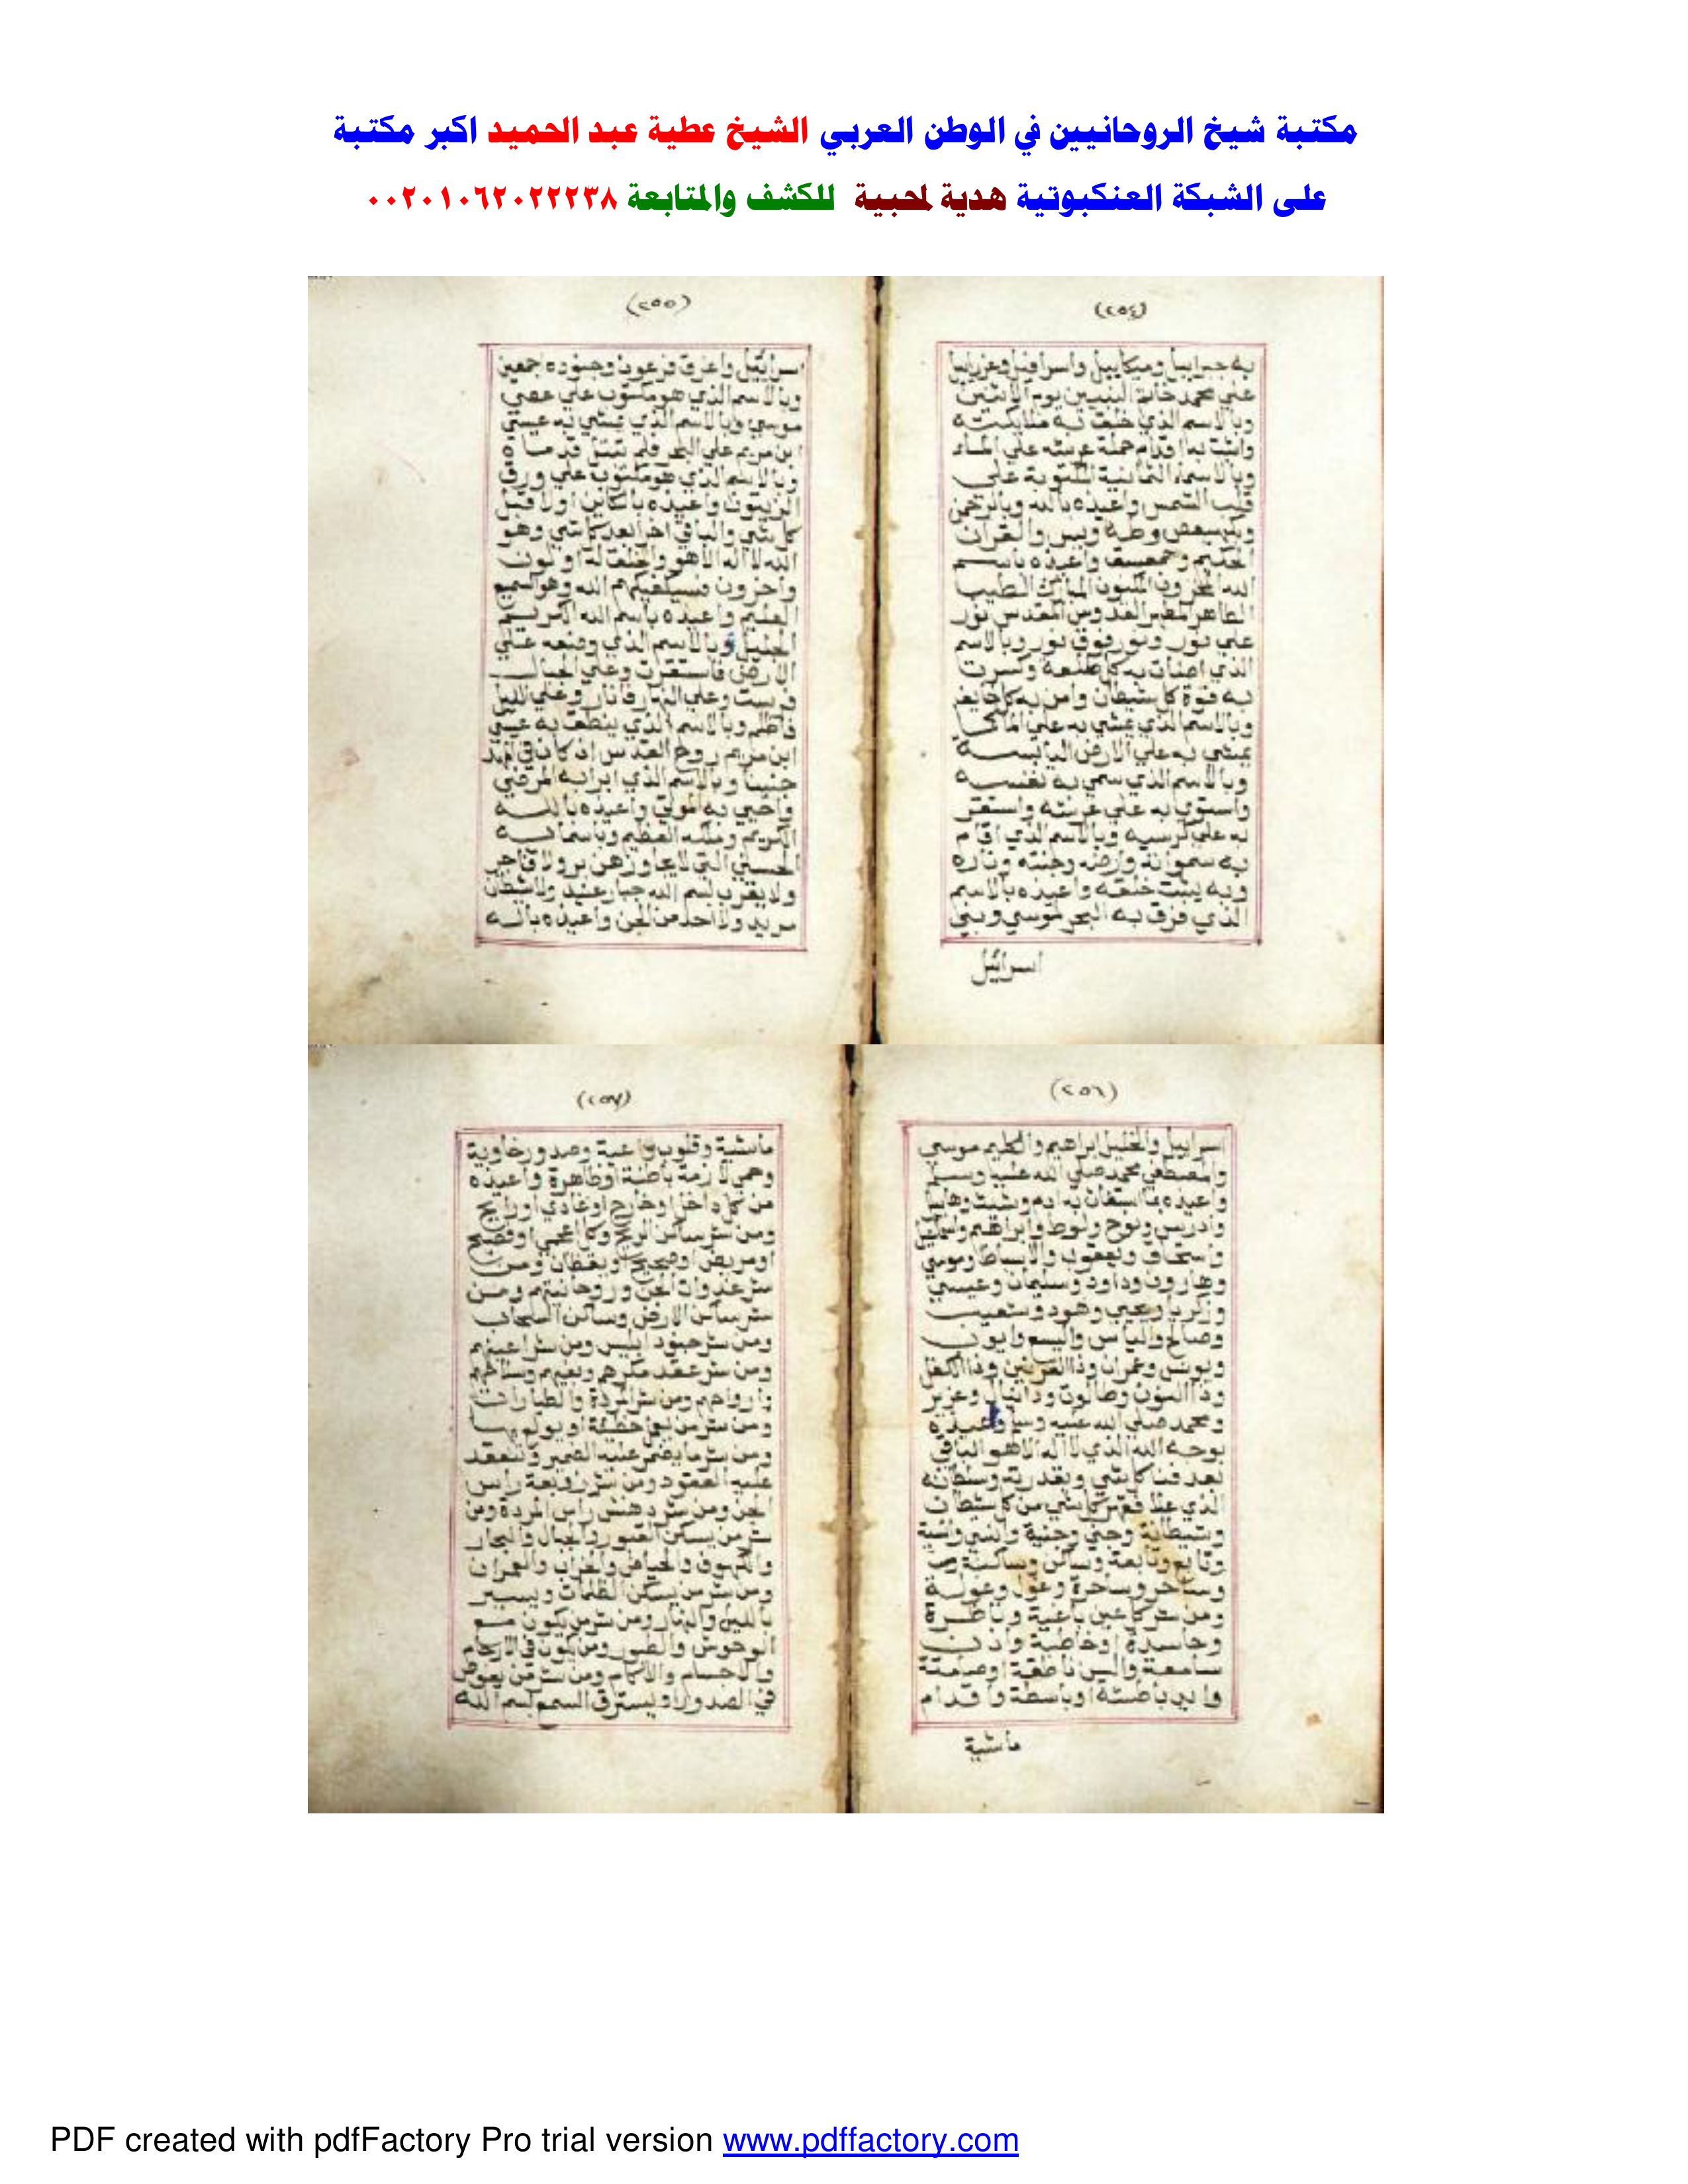 مكتبة شيخ الروحانيين في الوطن العربي الشيخ عطية عبد الحميد اكبر مكتبة
على الشبكة العنكبوتية هدية لمحبية للكشف والمتابعة ٠٠٢٠١٠٦٢٠٢٢٢٣٨
(٢٥٤)
به جبراييل وميكاييل واسرافيل وعزراييل
علي محمد خاتم النبيين يوم الاثنين
وبالاسم الذي خلقت به ملايكته
واثبت به اقدام حملة عرشه علي الماء
وبالاسماء الثمانية المكتوبة علي
قلب الشمس واعيذه بالله وبالرحمن
وبكهيعص وطه ويس والقران
الحكيم وحمعسق واعيذه باسم
الله المخزون المكنون المبارك الطيب
الطاهر المطهر القدوس المقدس نور
علي نور ونور فوق نور وبالاسم
الذي اضات به كل ظلمة وكسرت
به قوة كل شيطان وامن به كل خايف
وبالاسم الذي يمشي به علي الماء كما
يمشي به علي الارض اليابسة
وبالاسم الذي سمي به نفسه
واستوي به علي عرشه واستقر
به علي كرسيه وبالاسم الذي اقام
به سمواته وارضه وجنته وناره
وبه يثبت خلقه واعيذه بالاسم
الذي فرق به البحر لموسي وبني
اسرائيل
(٢٥٥)
اسرائيل واغرق فرعون وجنوده اجمعين
وبالاسم الذي هو مكتوب علي عصي
موسي وبالاسم الذي يمشي به عيسي
ابن مريم علي البحر فلم تبتل قدماه
وبالاسم الذي هو مكتوب علي ورق
الزيتون واعيذه بالكاين اولا قبل
كل شي والباقي اخرا بعد كل شي وهو
الله لا اله الا هو والخلق له اولون
واخرون فسيكفيكهم الله وهو السميع
العليم واعيذه باسم الله الكريم
الجليل وبالاسم الذي وضعه علي
الارض فاستقرت وعلي الجبال
فرست وعلي النهار فانار وعلي الليل
فاظلم وبالاسم الذي ينطق به عيسي
ابن مريم روح القدس اذ كان في المهد
وبالاسم الذي ابرا به المرضي
واحيي به الموتي واعيذه بالله
الكريم وملكه العظيم وباسمائه
الحسني التي لا يجاوزهن بر ولا فاجر
ولا يقرب بسم الله جبار عنيد ولا شيطان
مريد ولا احد من الجن واعيذه باله
(٢٥٦)
اسراييل والخليل ابراهيم والكليم موسي
والمصطفي محمد صلي الله عليه وسلم
واعيذه بما استغاث به ادم وشيث وهابيل
وادريس ونوح ولوط وابراهيم واسماعيل
واسحاق ويعقوب والاسباط وموسي
وهارون وداود وسليمان وعيسي
وزكريا ويحيي وهود وشعيب
وصالح والياس واليسع وايوب
ويونس وعمران وذا القرنين وذا الكفل
وذا النون وطالوت ودانيال وعزير
ومحمد صلي الله عليه وسلم واعيذه
بوجه الله الذي لا اله الا هو الباقي
بعد فنا كل شي وبقدرته وسلطانه
الذي علا كل شي من كل شيطان
وشيطانة وجني وجنية وانسي وانسية
وتابع وتابعة وساكن وساكنة
وساحر وساحرة وغول وغولة
ومن شر كل عين باغية وناظرة
وحاسدة او خاطية واذن
سامعة والسن ناطقة او صامتة
وايد باطشة او باسطة واقدام
ماشية
(٢٥٧)
ماشية وقلوب واعية وصدور خاوية
وهي لازمة باطنة او ظاهرة واعيذه
من كل داخل او خارج او غادي او رايح
ومن شر ساكن الريح وكل اعجمي او فصيح
او مريض او صحيح ويقظان ومن
شر عدوان الجن وروحانيتهم ومن
شر ساكن الارض وساكن السحاب
ومن شر جنود ابليس ومن شر اعينهم
ومن شر عقد مكرهم
وارواحهم ومن شر المردة والطيارات
ومن شر من يعمل خطيئة او يولم بها
ومن شر ما يضمر عليه الضمير وتنعقد
عليه العقود ومن شر زوبعة راس
الجن ومن شر دهنش راس المردة ومن
شر من يسكن القبور والجبال والبحار
والكهوف والحياض والخراب والعمران
ومن شر من يسكن الظلمات ويسير
بالليل والنهار ومن شر من يكون مع
الوحوش والطير ومن يكون في الارحام
والاجسام والاكام ومن شر من يعوص
في الصدور او يسترق السمع بسم الله
PDF created with pdfFactory Pro trial version www.pdffactory.com